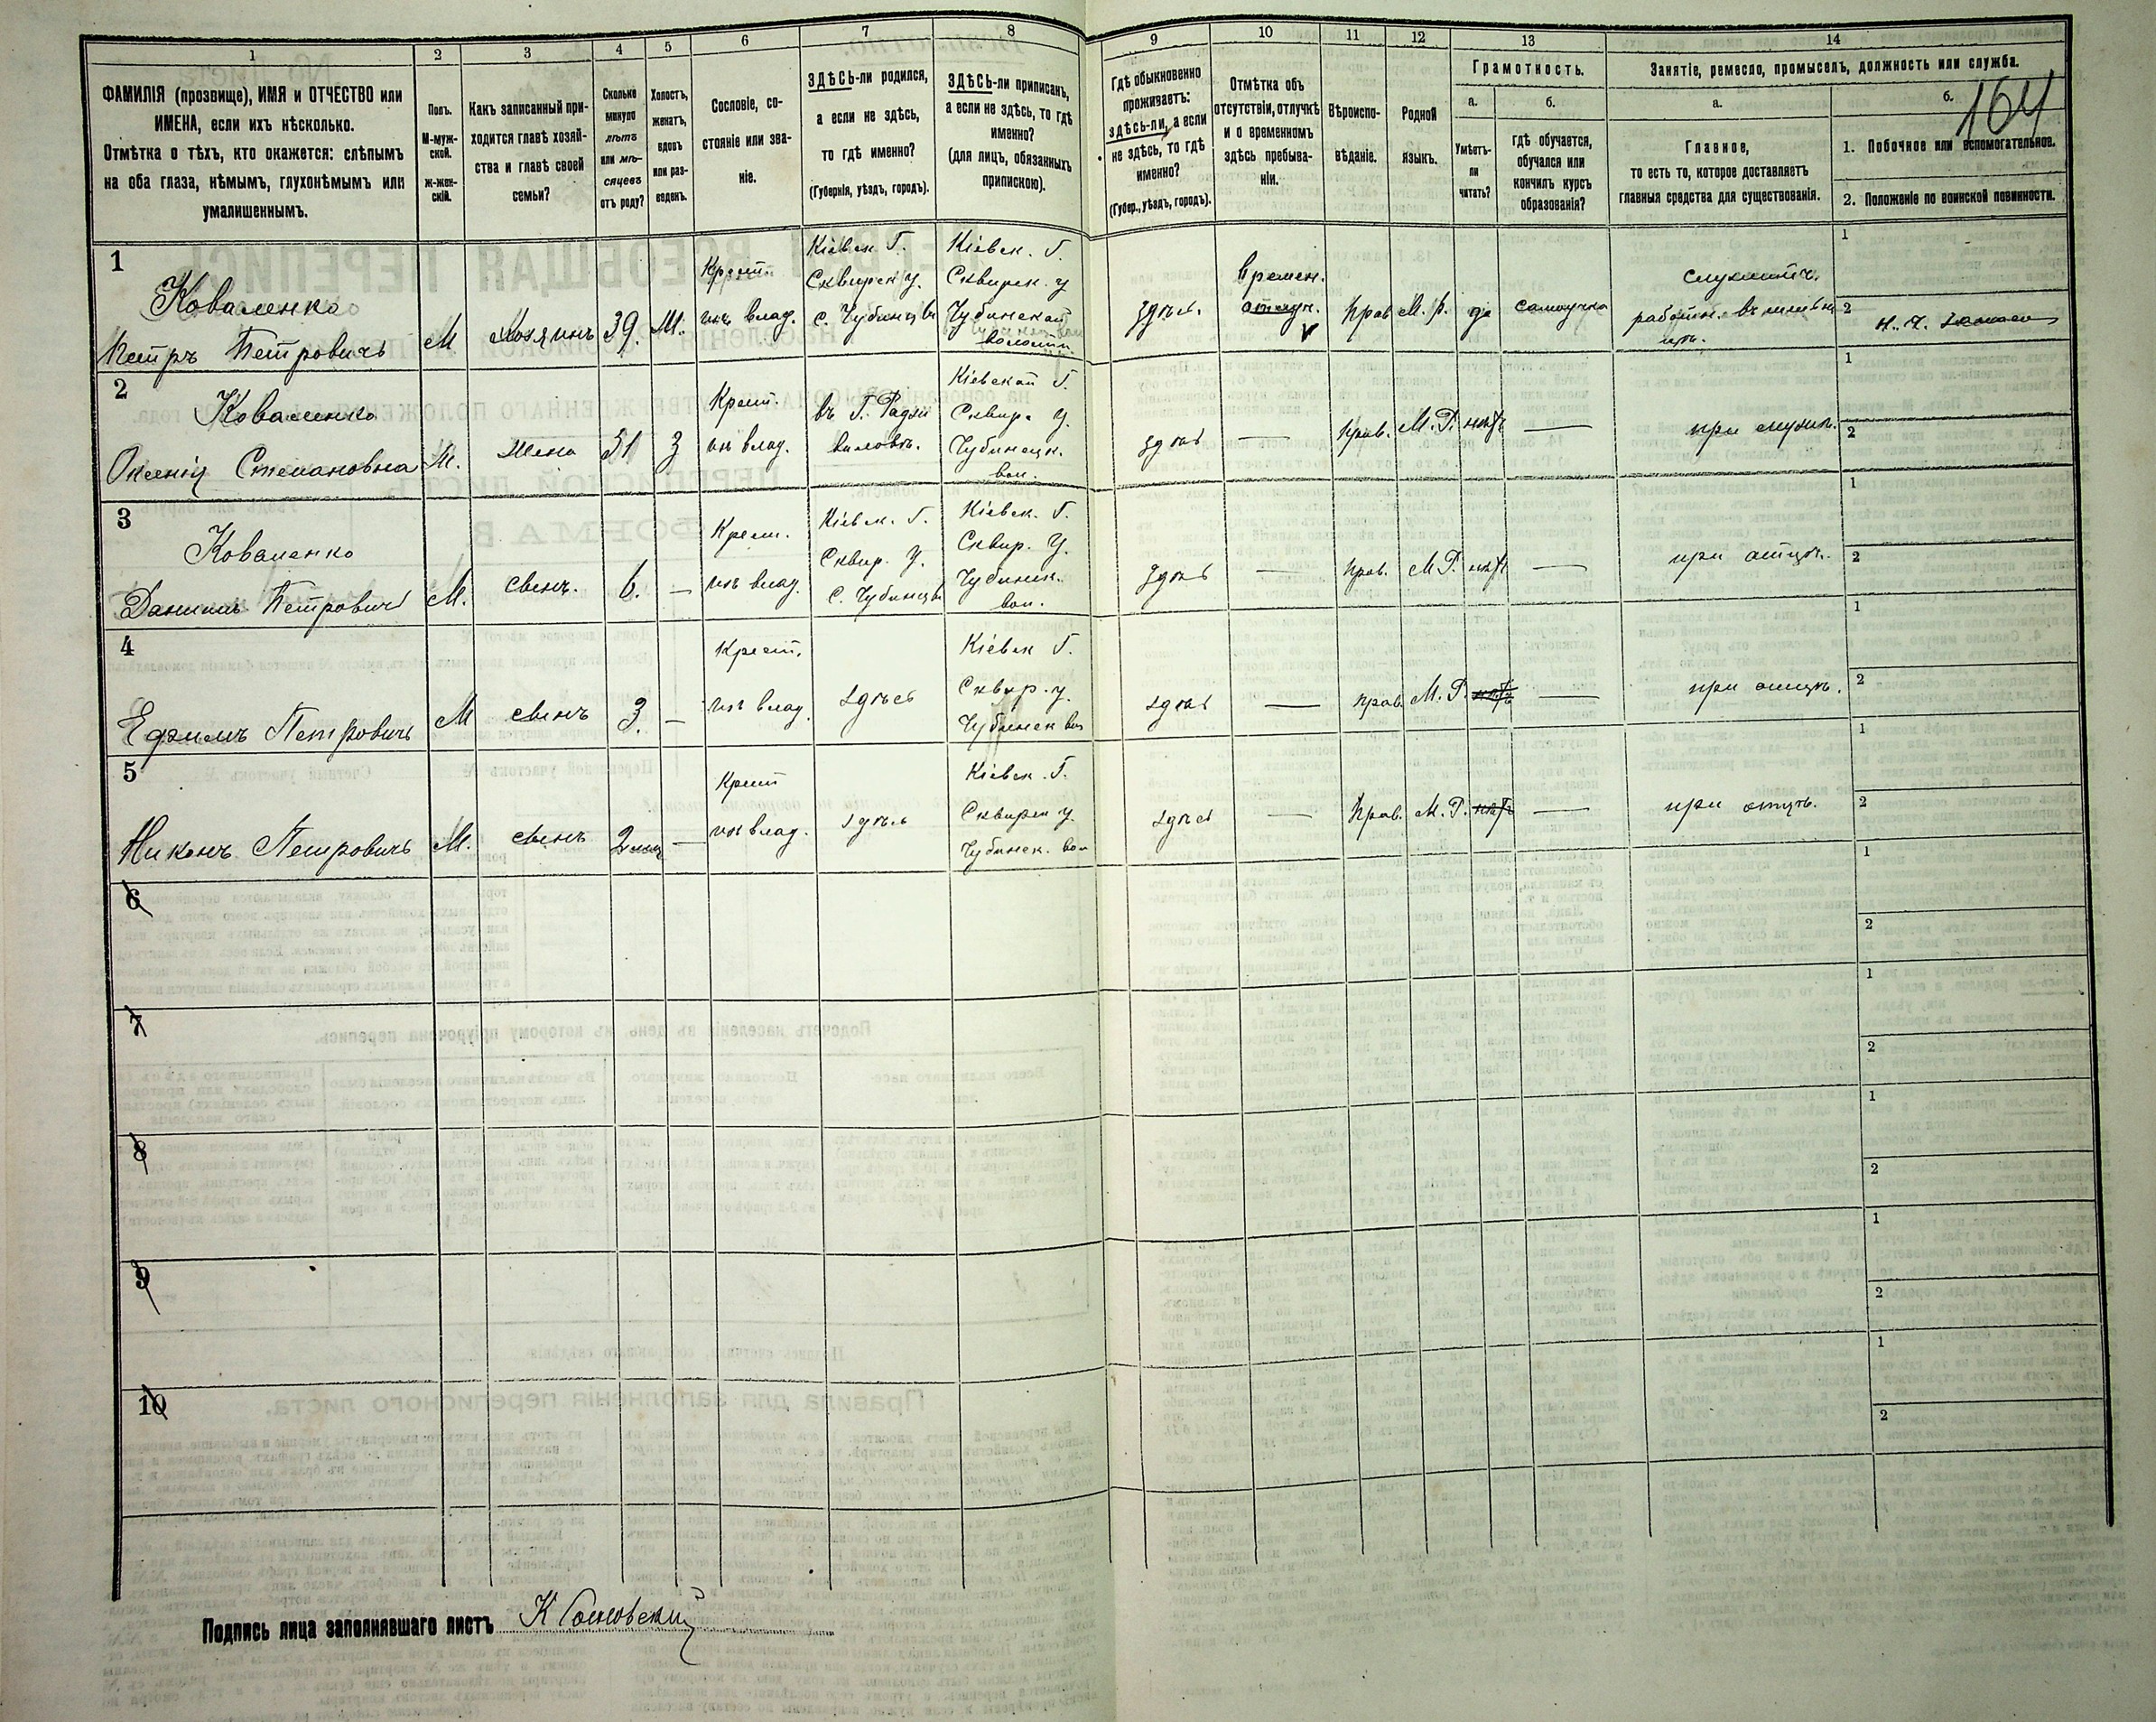 1 2 3 4 5 6 7 8 9 10 11 12 13 14
ФАМИЛІЯ (прозвище), ИМЯ и ОТЧЕСТВО или
ИМЕНА, если ихъ нѣсколько.
Отмѣтка о тѣхъ, кто окажется: слѣпымъ
на оба глаза, нѣмымъ, глухонѣмымъ или
умалишеннымъ.
Полъ.
М-муж-
ской.
ж-жен-
скій.
Какъ записанный при-
ходится главѣ хозяй-
ства и главѣ своей
семьи?
Сколько
минуло
лѣтъ
или мѣ-
сяцевъ
отъ роду?
Холостъ,
женатъ,
вдовъ
или раз-
веденъ.
Сословіе, со-
стояніе или зва-
ніе.
ЗДѢСЬ-ли родился,
а если не здѣсь,
то гдѣ именно?
(Губернія, уѣздъ, городъ).
ЗДѢСЬ-ли приписанъ,
а если не здѣсь, то гдѣ
именно?
(для лицъ, обязанныхъ
припискою).
Гдѣ обыкновенно
проживаетъ:
здѣсь-ли, а если
не здѣсь, то гдѣ
именно?
(Губер., уѣздъ, городъ).
Отмѣтка объ
отсутствіи, отлучкѣ
и о временномъ
здѣсь пребыва-
ніи.
Вѣроиспо-
вѣданіе.
Родной
языкъ.
Грамотность.
а.
Умѣетъ-
ли
читать?
б.
Гдѣ обучается,
обучался или
кончилъ курсъ
образованія?
Занятіе, ремесло, промыселъ, должность или служба.
а.
Главное,
то есть то, которое доставляетъ
главныя средства для существованія.
б.
164
1. Побочное или вспомогательное.
2. Положеніе по воинской повинности.
1
Коваленко
Петръ Петровичъ
М
Хозяинъ
39.
Ж.
Крест.
изъ влад.
Кіевск Г.
Сквирск у.
с. Чубинцы
Кіевск. Г.
Сквирск. у
Чубинской
волости.
здѣсь.
Времен.
отлуч.
Прав
М. р.
да
самоучка
служитъ
работн.
1
2
2
Коваленко
Ксенія Степановна
Ж.
жена
31
З
Крест.
изъ влад.
въ Г. Радзи
виловѣ.
Кіевской Г.
Сквир. у.
Чубинецк.
вол.
здѣсь
—
Прав.
М. Р.
нѣтъ
—
при мужѣ.
1
2
3
Коваленко
Даніилъ Петровичъ
М.
сынъ.
6.
—
Крест.
изъ влад.
Кіевск. Г.
Сквир. У.
С. Чубинцы
Кіевск. Г.
Сквир. У.
Чубинск.
вол.
здѣсь
—
Прав.
М. Р.
нѣтъ
—
при отцѣ.
1
2
4
Ефимъ Петровичъ
М
сынъ
3.
—
Крест.
изъ влад.
здѣсь
Кіевск Г.
Сквир. у.
Чубинск вол
здѣсь
—
прав.
М. Р.
нѣтъ
—
при отцѣ.
1
2
5
Никонъ Петровичъ
М.
сынъ
2 мѣс
—
Крест
изъ влад.
здѣсь
Кіевск. Г.
Сквирск у.
Чубинск. вол
здѣсь
—
Прав.
М. Р.
нѣтъ
—
при отцѣ.
1
2
6
1
2
7
1
2
8
1
2
9
1
2
10
1
2
Подпись лица заполнявшаго листъ